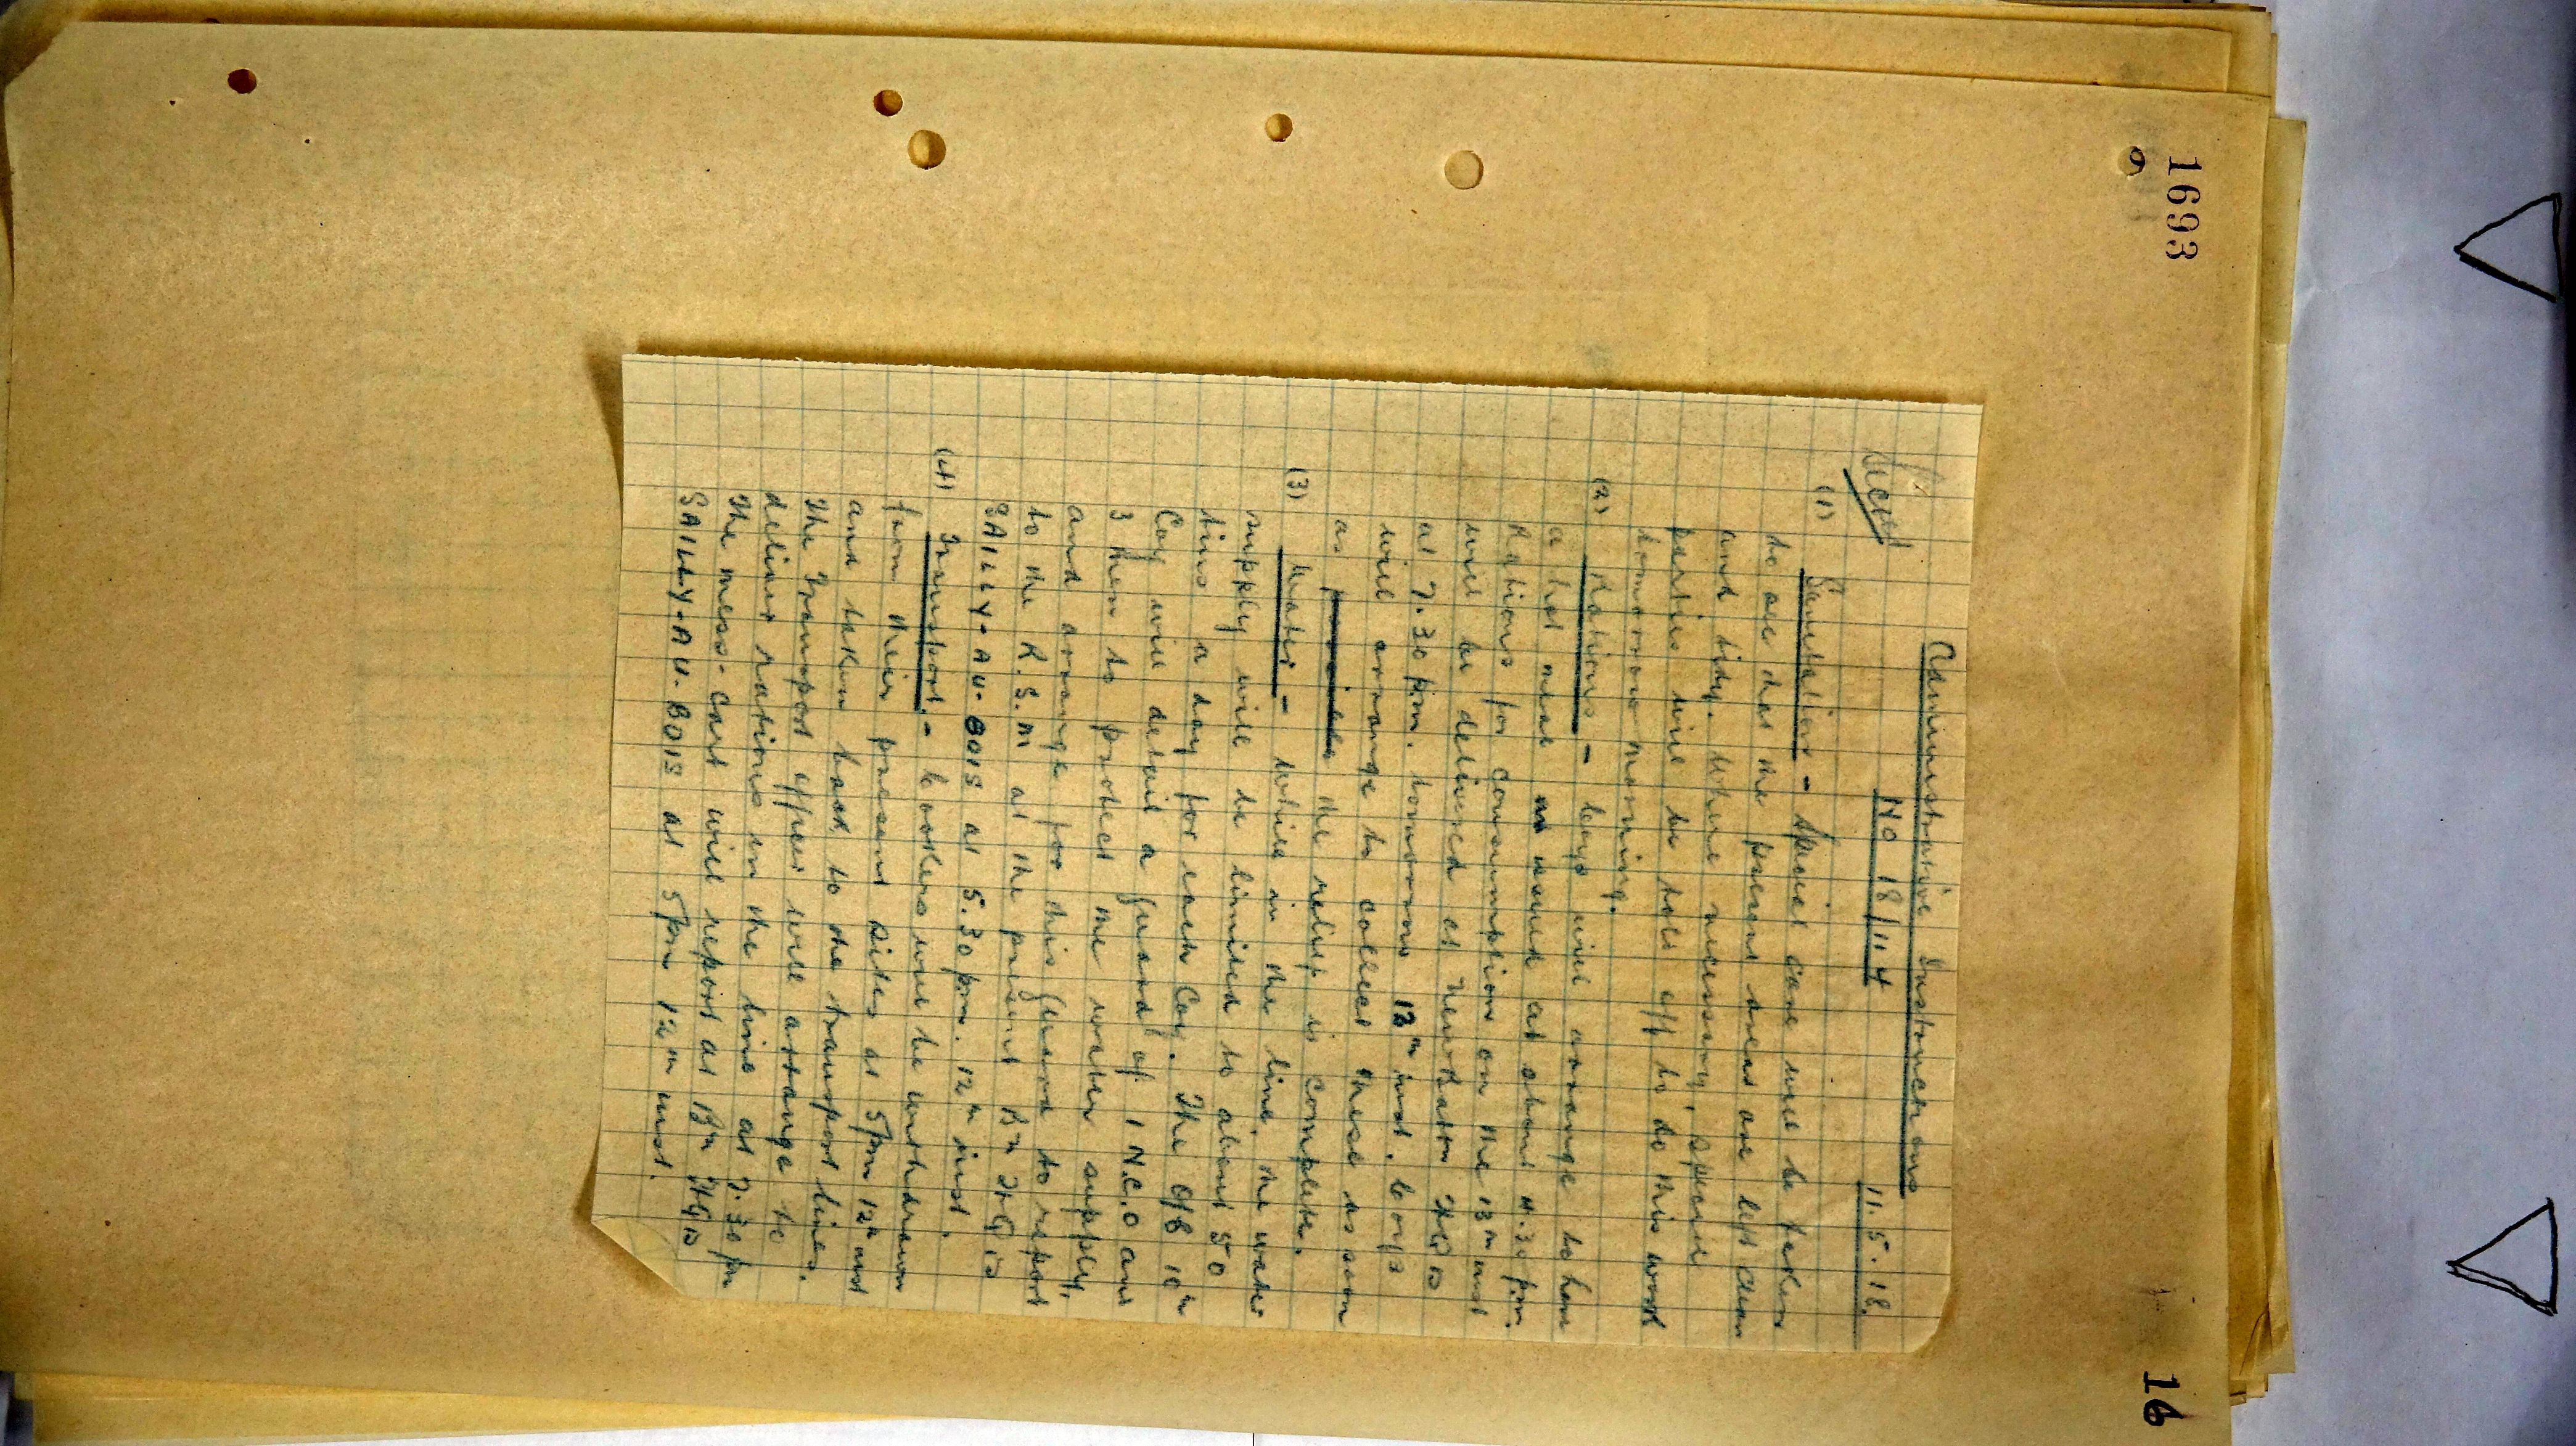 1693
9
16
Administrative Instructions
No 18/114
11.5.18.
Secret
(1) Sanitation - Special care will be taken
to see that the present areas are left clean
and tidy. Where necessary, special
parties will be told off to do this work
tomorrow morning.
(2) Rations - Coys will arrange to have
a hot meal issued at about 4.30 pm.
Rations for consumption on the 13th inst
will be delivered at new Battn HQrs
at 7.30 pm. tomorrow 12th inst. Coys
will arrange to collect these as soon
as possible the relief is complete.
(3) Water - Whilst in the line, the water
supply will be limited to about 50
tins a day for each Coy. The O/C 10th
Coy will detail a guard of 1 N.C.O and
3 men to protect the water supply,
and arrange for this guard to report
to the R.S.M at the present Bn HQrs
SAILLY-AU-BOIS at 5.30 pm. 12th inst.
(4) Transport. - Cookers will be withdrawn
from their present sites at 5 pm 12th inst
and taken back to the transport lines.
The Transport officer will arrange to
deliver rations in the line at 7.30 pm
The mess-cart will report at Bn HQrs
SAILLY-AU-BOIS at 5 pm 12th inst.